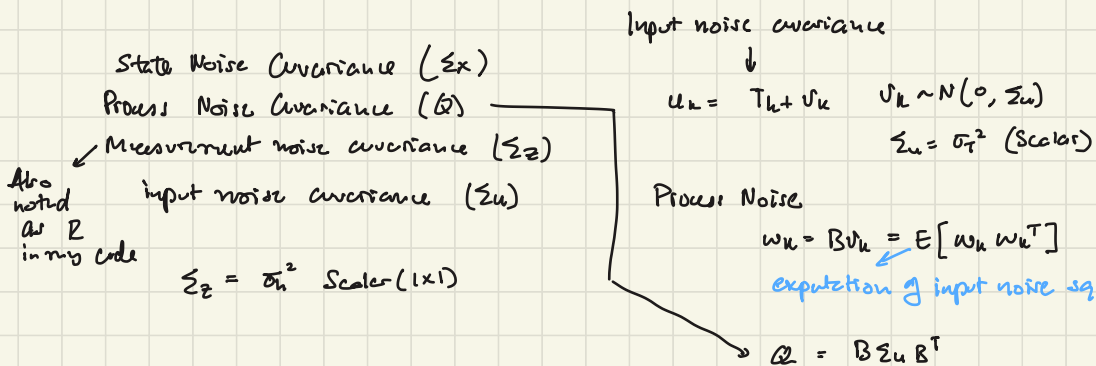 State Noise Covariance (Σx)
Process Noise Covariance (Q)
Measurement noise covariance (Σz)
Also noted as R in my code
input noise covariance (Σu)
Σz = σh² Scalar (1×1)
Input noise covariance
↓
uk = Tk + vk    vk ~ N(0, Σu)
Σu = σT² (Scalar)
Process Noise
wk = Bvk = E[wk wkᵀ]
expectation of input noise sq
Q = BΣuBᵀ